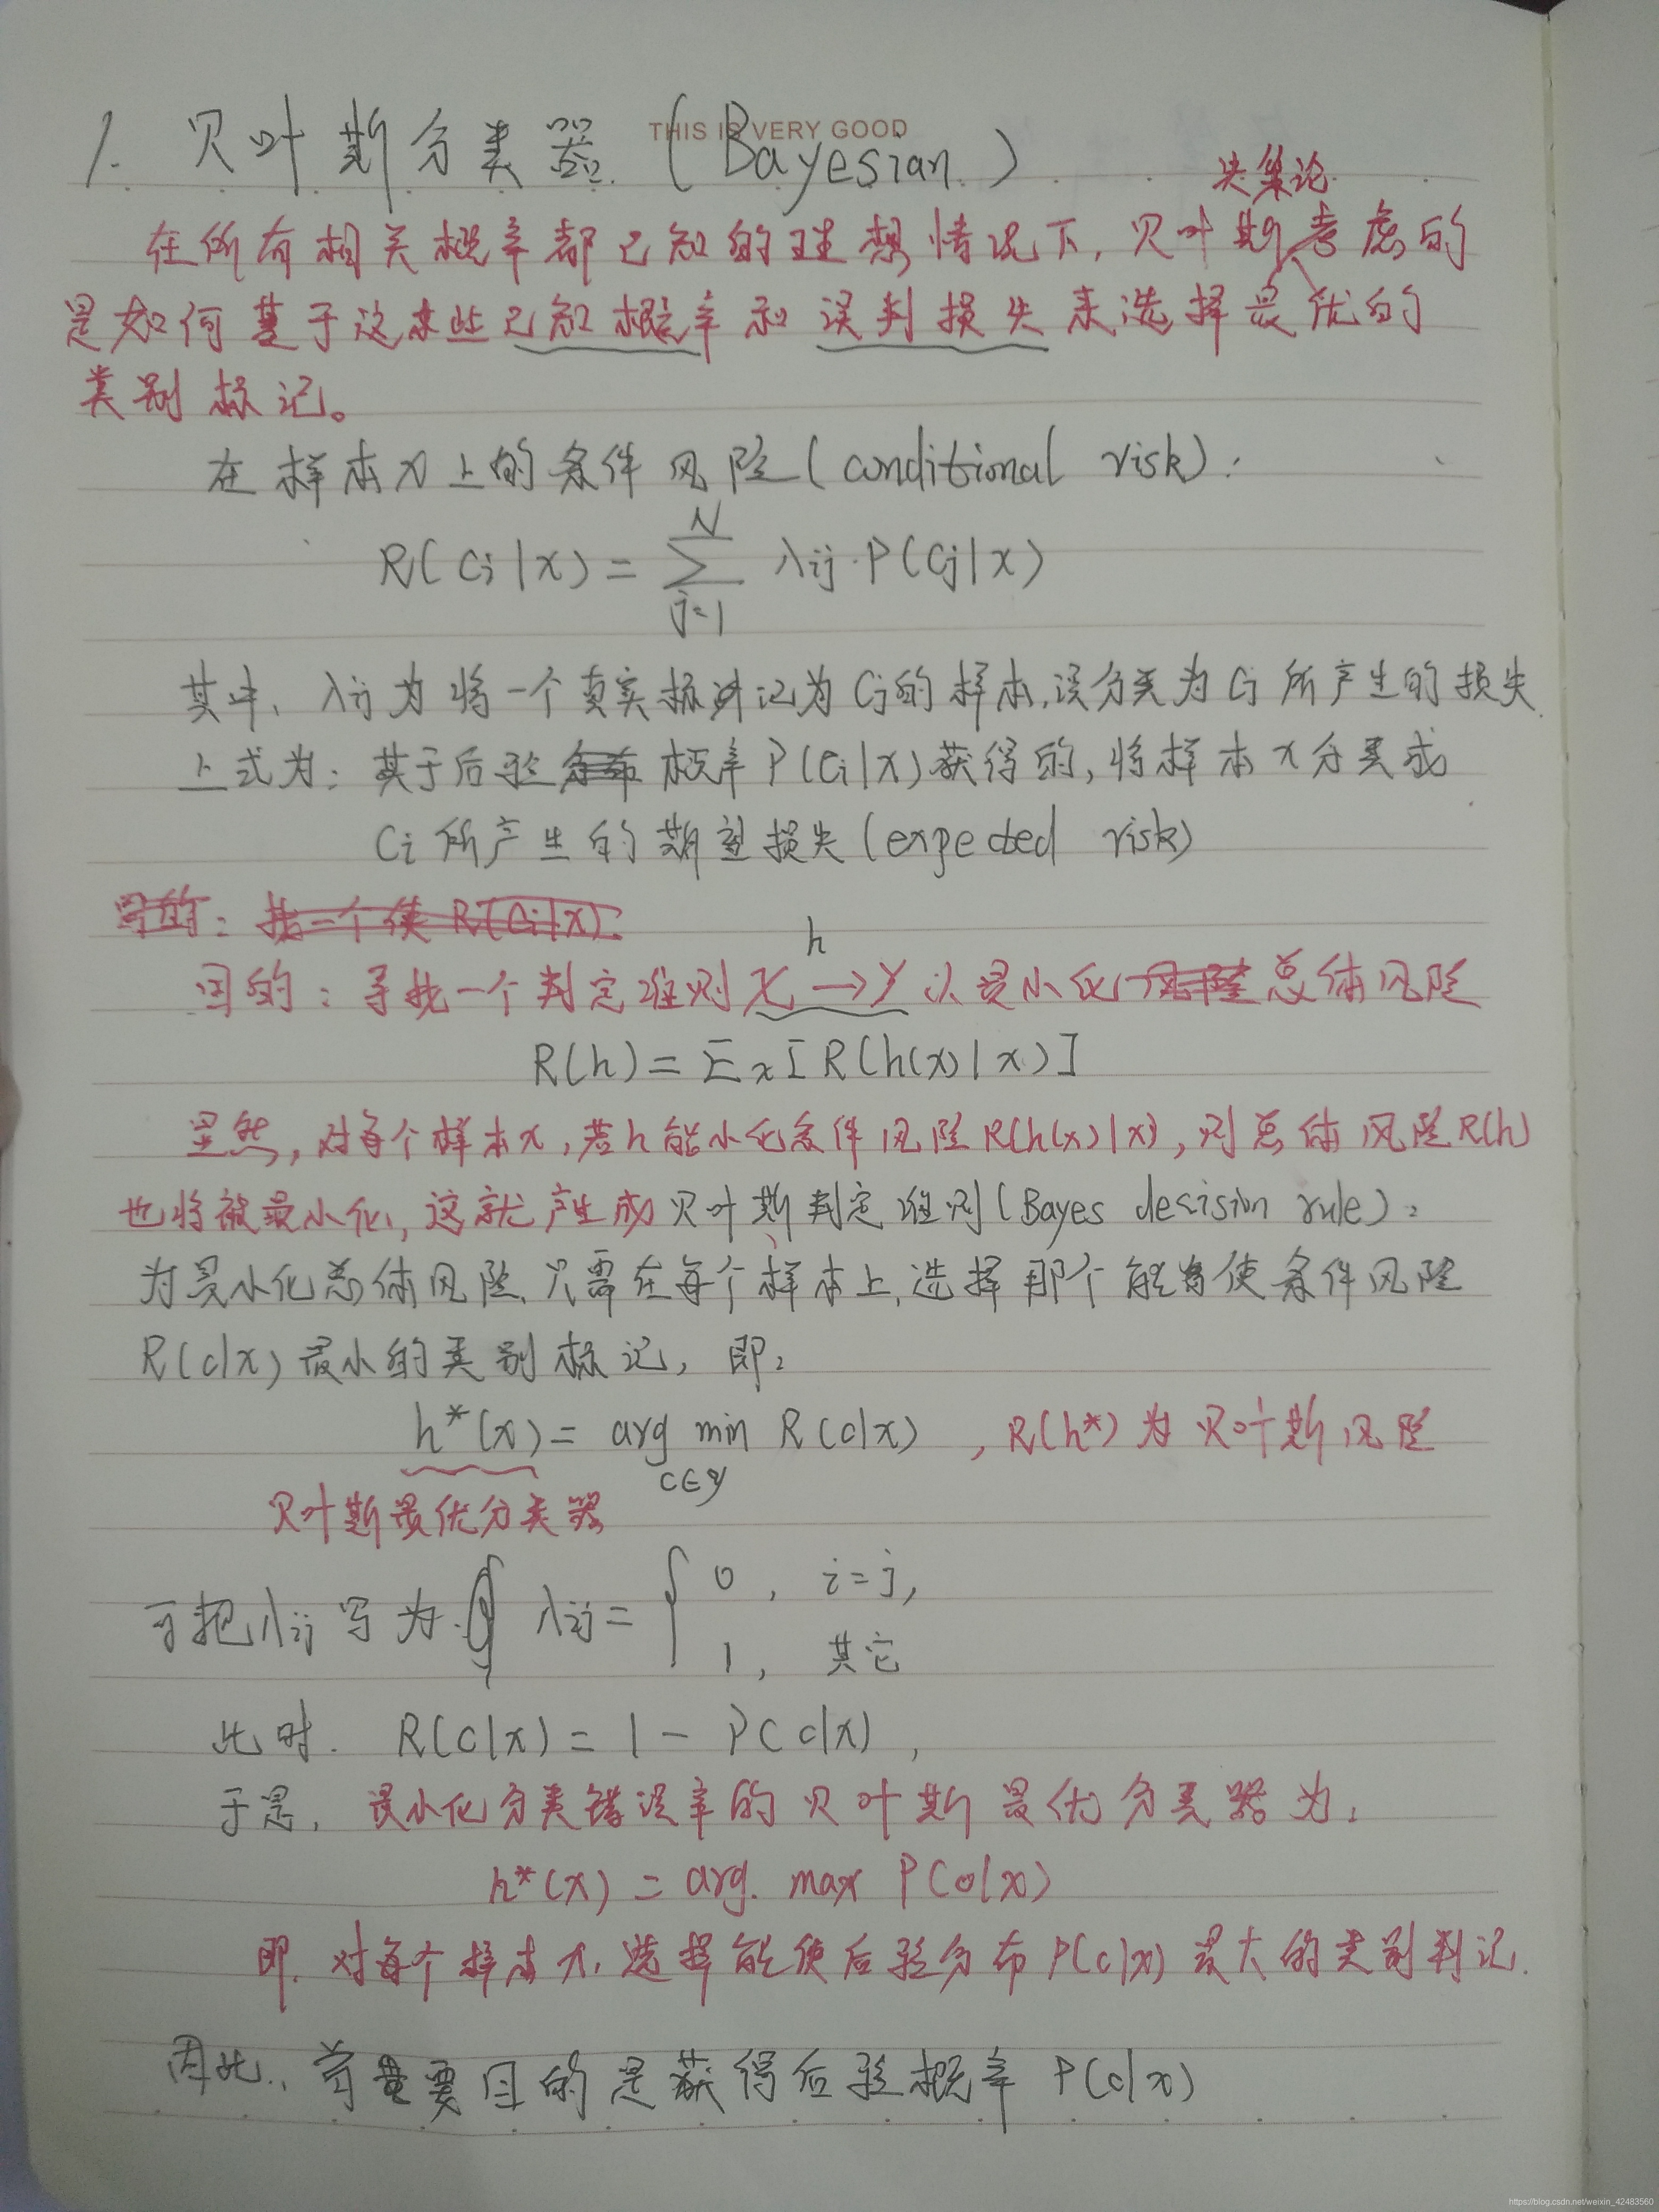 THIS IS VERY GOOD
1. 贝叶斯分类器 (Bayesian)
决策论
在所有相关概率都已知的理想情况下, 贝叶斯考虑的
是如何基于这些已知概率和误判损失来选择最优的
类别标记。
在样本x上的条件风险(conditional risk):
R(ci|x) = ∑ λij·P(cj|x)
N
j=1
其中, λij为将一个真实标记为cj的样本,误分类为ci所产生的损失.
上式为: 基于后验概率P(ci|x)获得的,将样本x分类成
ci所产生的期望损失(expected risk)
目的: 找一个使R(ci|x):
h
目的: 寻找一个判定准则 X→Y 以最小化总体风险
R(h) = Ex[R(h(x)|x)]
显然, 对每个样本x, 若h能小化条件风险R(h(x)|x), 则总体风险R(h)
也将被最小化, 这就产生成贝叶斯判定准则(Bayes decision rule):
为最小化总体风险, 只需在每个样本上,选择那个能使条件风险
R(c|x)最小的类别标记, 即:
h*(x) = arg min R(c|x) , R(h*)为贝叶斯风险
c∈y
贝叶斯最优分类器
可把λij写为 λij = { 0, i=j,
1, 其它
此时. R(c|x) = 1 - P(c|x),
于是, 最小化分类错误率的贝叶斯最优分类器为:
h*(x) = arg. max P(c|x)
即. 对每个样本x, 选择能使后验分布P(c|x)最大的类别判记.
因此, 首要目的是获得后验概率P(c|x)
https://blog.csdn.net/weixin_42483560